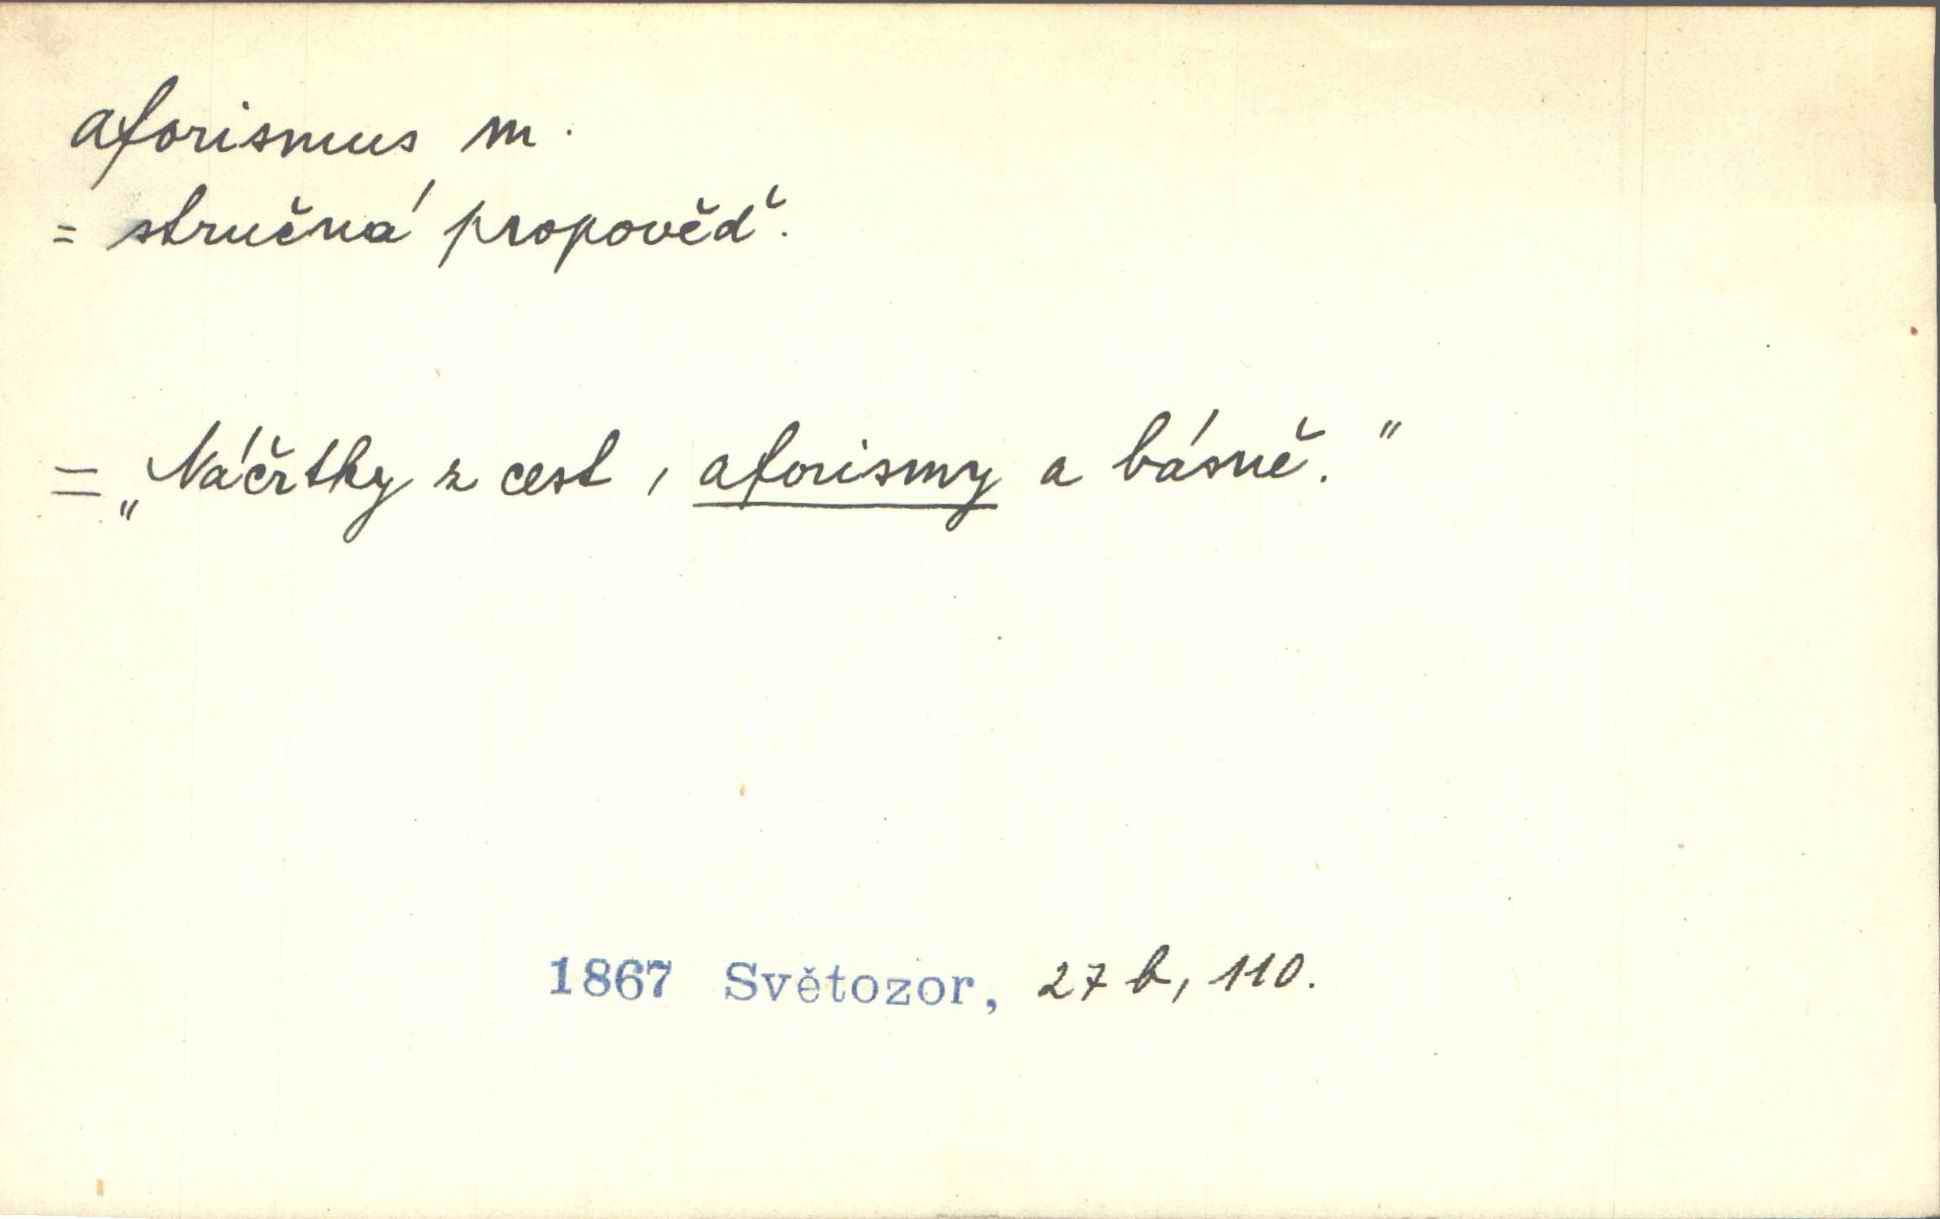 aforismus m.
= stručná propověď.
= „Náčrtky z cest, aforismy a básně.“
1867 Světozor, 27 b, 110.